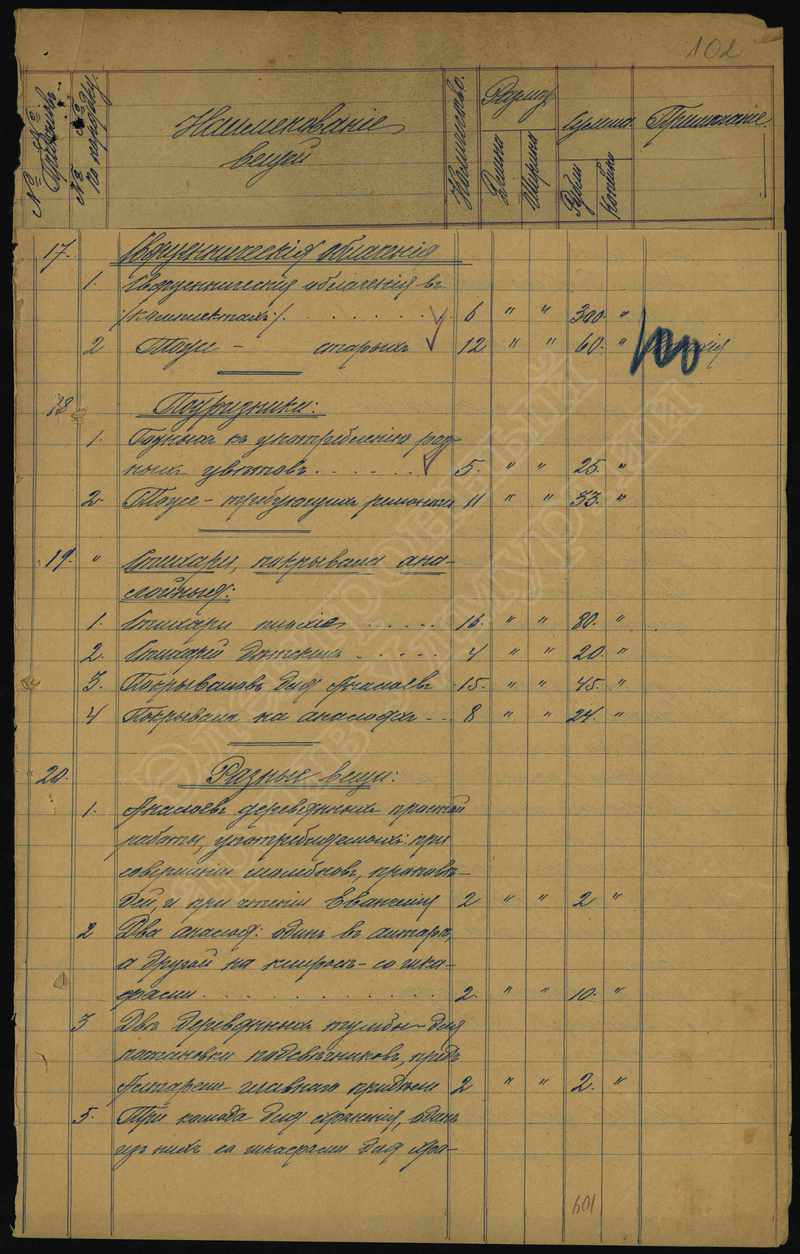 102
№№ 
№№ по порядку.
Наименованіе вещей
Количество.
Размѣръ
Длина
Ширина
Сумма
Рубли
Копѣйки
Примѣчаніе.
17. Священническія облаченія
1. Священническія облаченія въ
/комплектахъ/. . . . . . . 6 " " 300. "
2 Тоже — старыхъ 12 " " 60. "
18 Подризники:
1. Годныхъ къ употребленію раз-
ныхъ цвѣтовъ. . . . . . 5. " " 25. "
2. Тоже - требующихъ ремонта 11 " " 33. "
19. " Стихари, покрывала ана-
лойныя:
1. Стихари . . . . . 16. " " 80. "
2. Стихарей дѣтскихъ . . . . . 4 " " 20. "
3. Покрываловъ для Аналоевъ 15. " " 45. "
4 Покрывала на аналояхъ - . 8 " " 24. "
20. Разныя вещи:
1. Аналоевъ деревянныхъ простой
работы, употребляемыхъ при
совершеніи молебновъ, проповѣ-
дей, и при чтеніи Евангелія 2 " " 2 "
2 Два аналоя: одинъ въ алтарѣ,
а другой на клиросѣ - со шка-
фами. . . . . . . . . . 2. " " 10. "
3 Двѣ деревянныхъ тумбы - для
постановки подсвѣчниковъ, предъ
главнаго придѣла 2 " " 2. "
5. Три комода для храненія, одинъ
изъ нихъ со шкафами для хра-
104